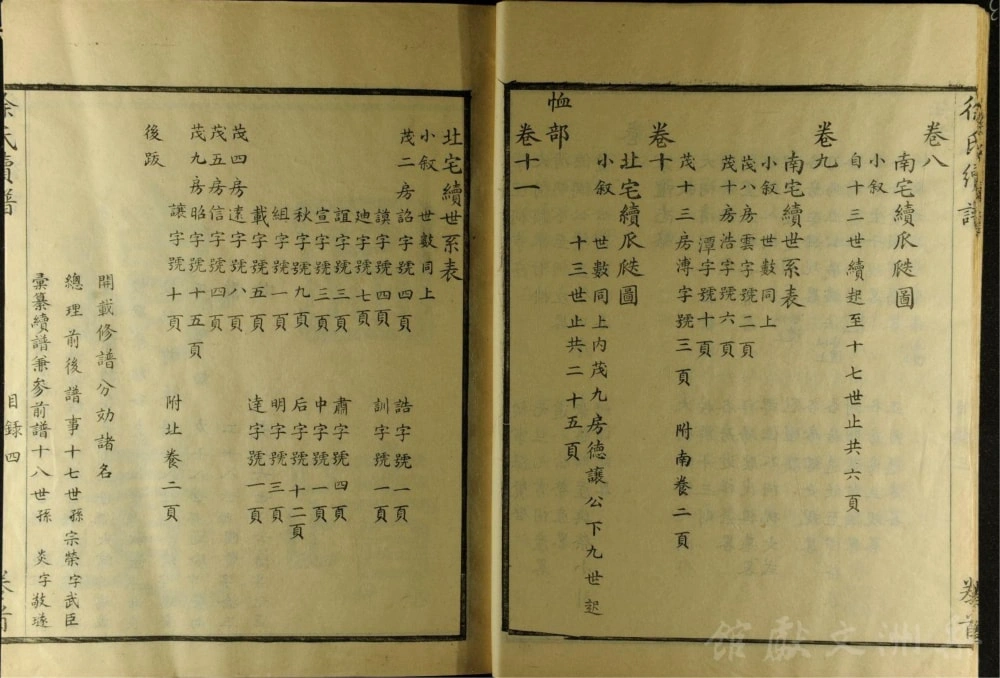 徐氏續譜
卷首
卷八
南宅續𠂢瓞圖
小叙
自十三世續起至十七世止共六頁
卷九
南宅續世系表
小叙 世數同上
茂八房雲字號二頁
茂十房浩字號六頁
潭字號十頁
茂十三房溥字號三頁 附南養二頁
卷十
北宅續𠂢瓞圖
小叙 世數同上内茂九房德讓公下九世起
十三世止共二十五頁
恤部
卷十一
北宅續世系表
小叙 世數同上
茂二房詒字號四頁 誥字號一頁
謨字號四頁 訓字號一頁
迪字號七頁
誼字號三頁 肅字號四頁
宣字號三頁 中字號一頁
秋字號九頁 后字號十二頁
組字號一頁 明字號三頁
載字號五頁 達字號一頁
茂四房遠字號八頁
茂五房信字號四頁
茂九房昭字號十五頁
讓字號十頁 附北養二頁
後跋
開載修譜分効諸名
總理前後譜事十七世孫宗榮字武臣
彙纂續譜兼參前譜十八世孫 炎字敬
徐氏續譜
目録四
卷首
洲文獻館